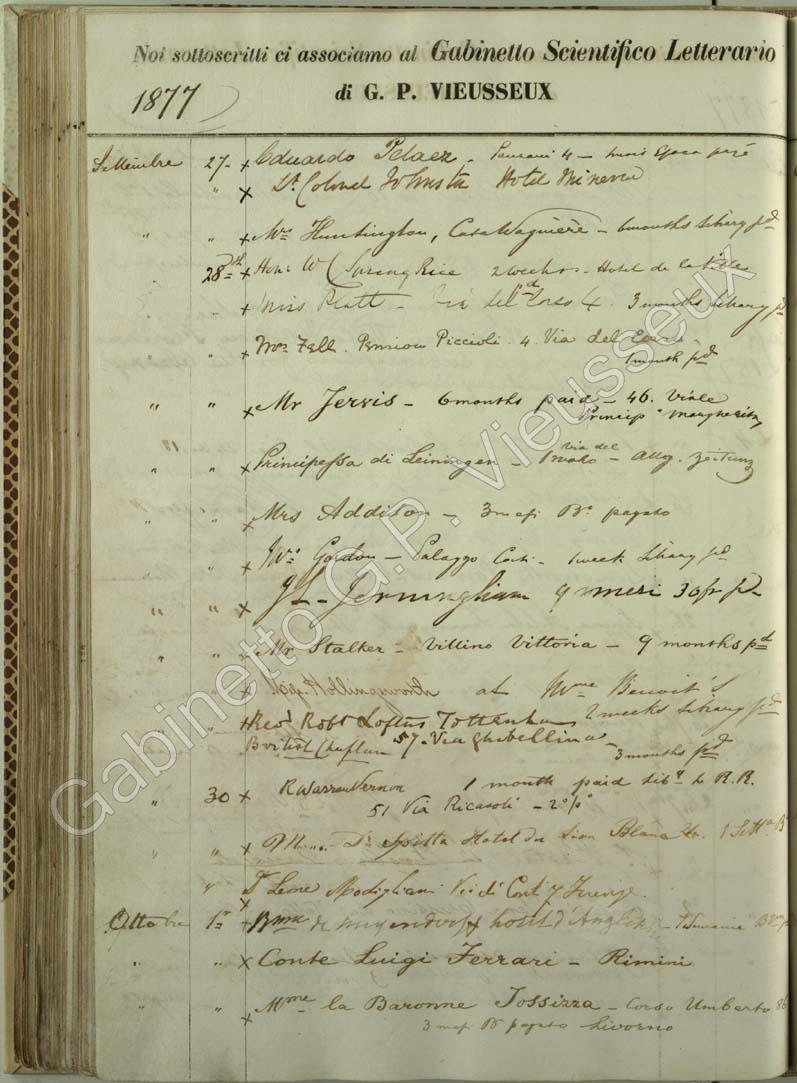 Noi sottoscritti ci associamo al Gabinetto Scientifico Letterario
di G. P. VIEUSSEUX
1877
Settembre 27 x Eduardo Pelaez - 4 -
" x Lt. Colonel Johnston Hotel Minerva
" " x Mrs Huntington, Casa Wagnière - 6 months library pd
28th x Honble W C Spring Rice 2 weeks - Hotel de la Ville
" x Miss Platt - Via del Corso 4. 3 months library pd
" x Mrs Fell. Pension Piccioli. 4 Via del
1 month pd
" " x Mr Jervis - 6 months paid - 46. Viale
Princip Margherita
" " x Principessa di Leiningen - Via del Prato - Allg. Zeitung
" " x Mrs Addison - 3 mesi Bn pagato
" x Mrs Gordon - Palazzo Corsi - 1 week library pd
" " x J L Jerningham 9 mesi 30 fr pd
" " x Mr Stalker - Villino Vittoria - 9 months pd
x Hollingsworth at Mme Benoit's
" " x Revd Robt Loftus Tottenham 2 weeks library pd
British Chaplain 57 - Via Ghibellina - 3 months pd
" 30 x R Warren Vernon 1 month paid liby & R.R.
51 Via Ricasoli - 2º pº
" " x Dr Spitta Hotel du Lion Blanc
" x Leone Modigliani Via di
Ottobre 1º x Bnne de Meyendorff hotel d'Angleterre -
" " x Conte Luigi Ferrari - Rimini
" " x Mme la Baronne Tossizza - Corso Umberto 86
3 mesi Bn pagato Livorno
Gabinetto G.P. Vieusseux